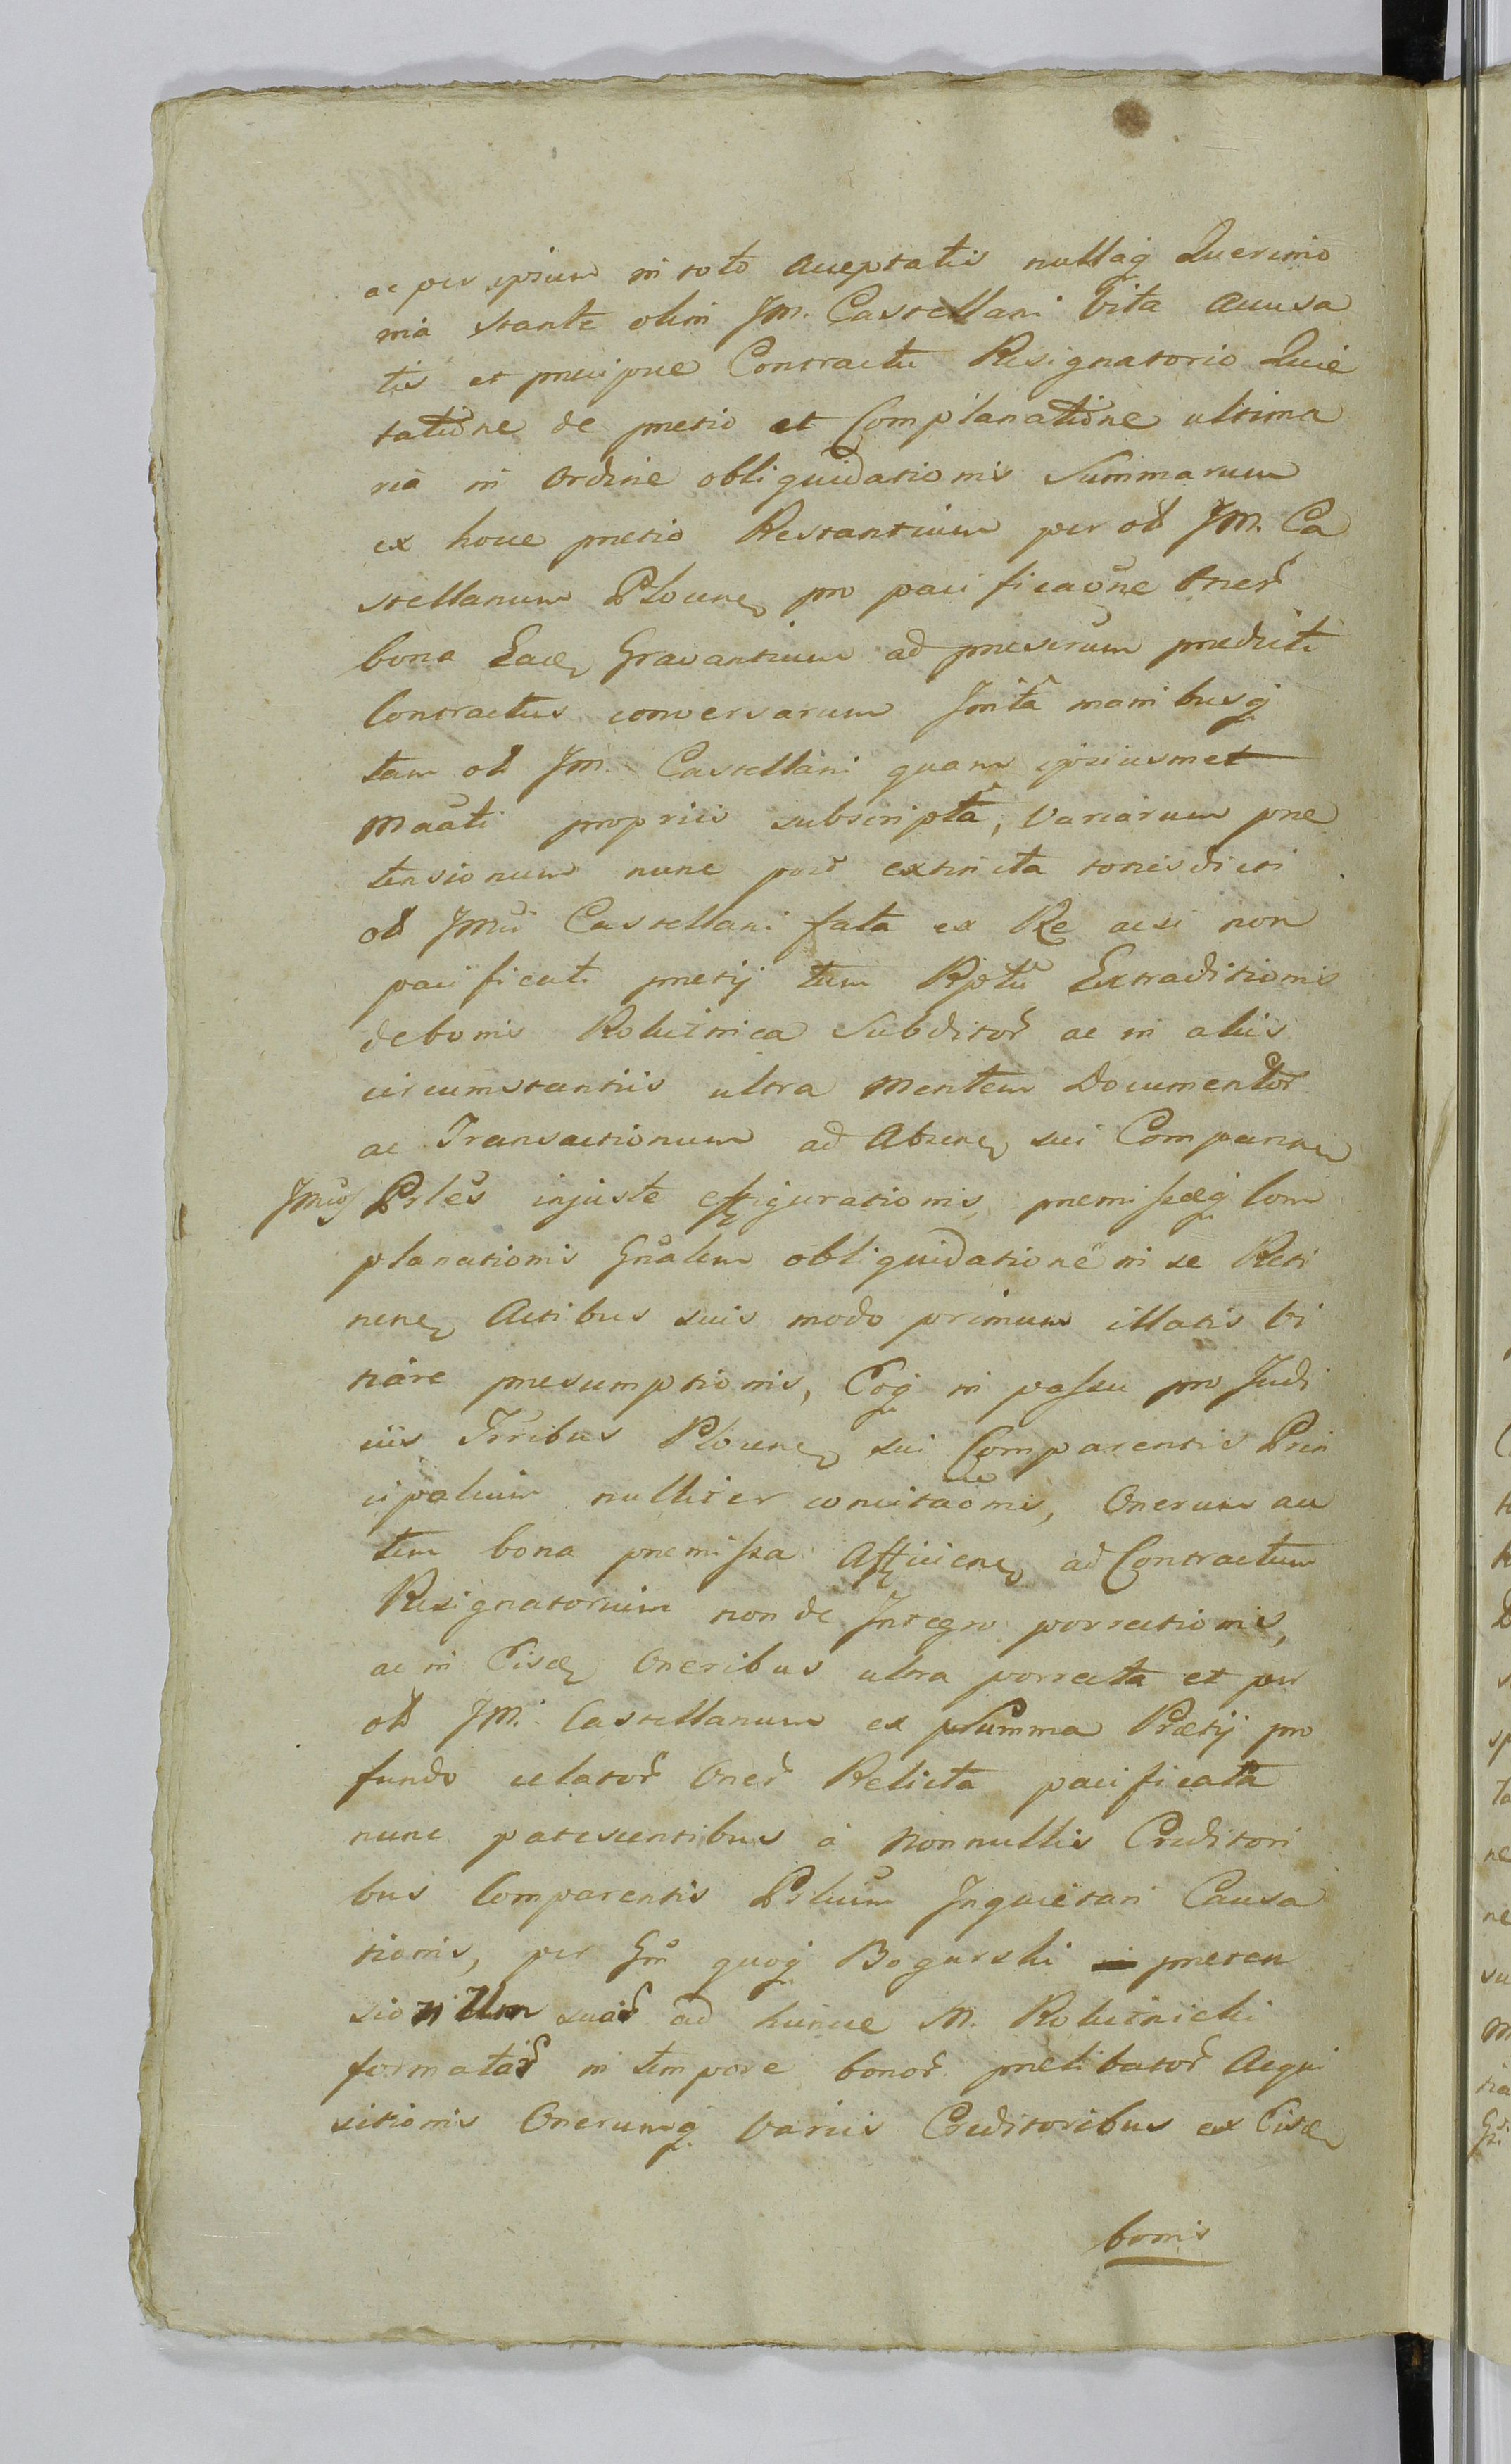 ac per ipsum in toto acceptatis nullaq Querimo
nia stante olim JM. Castellani vita accusa
tis et precipue Contractu Resignatorio Quie
tatione de pretio et Complanatione ultima
ria in ordine obliquidationis Summarum
ex hocce pretio Restantium per ol JM. Ca
stellanum Plocen pro pacificaone oner
bona Eade Gravantium ad prescrum predicti
Contractus conversarum Jnita manibusq
tam ol JM. Castellani quam ipsiusmet
Maati propriis subscripta, variarum pre
tensionum nunc post extincta toties dicti
ol JMci Castellani fata ex Re acsi non
pacificati pretij tum Rptu Extraditionis
de bonis Rokitnica Subditor ac in aliis
circumstantiis ultra mentem Documentor
ac Transactionum ad Absen sui Comparen
JMcos Prles injuste effigurationis, premissaeq Com
planationis Gnalem obliquidatione in se Reti
nen Actibus suis modo primum illatis vi
tiare presumptionis, Eoq in passu pro Judi
ciis Trribus Plocen sui Comparentis Prin
cipalium nulliter concitaonis, Onerum au
tem bona premissa Afficien ad Contractum
Resignatorium non de Integro porrectionis,
ac in Eisde Oneribus ultra porrecta et per
ol JM. Castellanum ex Summa Prætij pro
fundo celator Oner Relicta pacificata
nunc patescentibus à Nonnullis Creditori
bus Comparentis Prlium Inquietari Causa
tionis, per Gm quoq Bogurski preten
sionum suar ad huncce M. Rokitnicki
formatar in tempore bonor prelibator Acqui
sitionis Onerumq variis Creditoribus ex Eisde
bonis